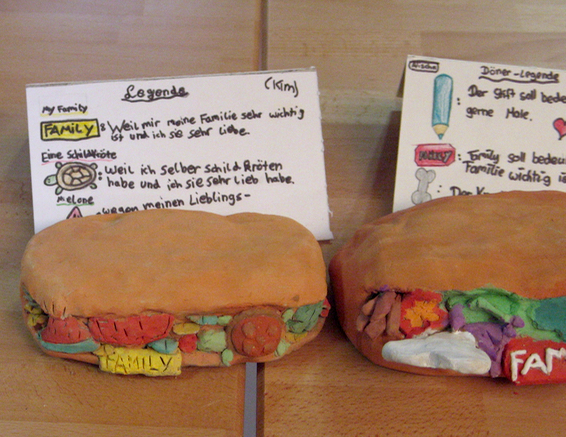 Legende (Kim)
My Family
FAMILY : Weil mir meine Familie sehr wichtig
ist und ich sie sehr Liebe.
Eine Schildkröte
: Weil ich selber schildkröten
habe und ich sie sehr lieb habe.
Melone
: wegen meinen Lieblings-
FAMILY
Döner-Legende
: Der Stift soll bede
gerne Male.
: Family soll bedeu
Familie wichtig i
: Der
FAM